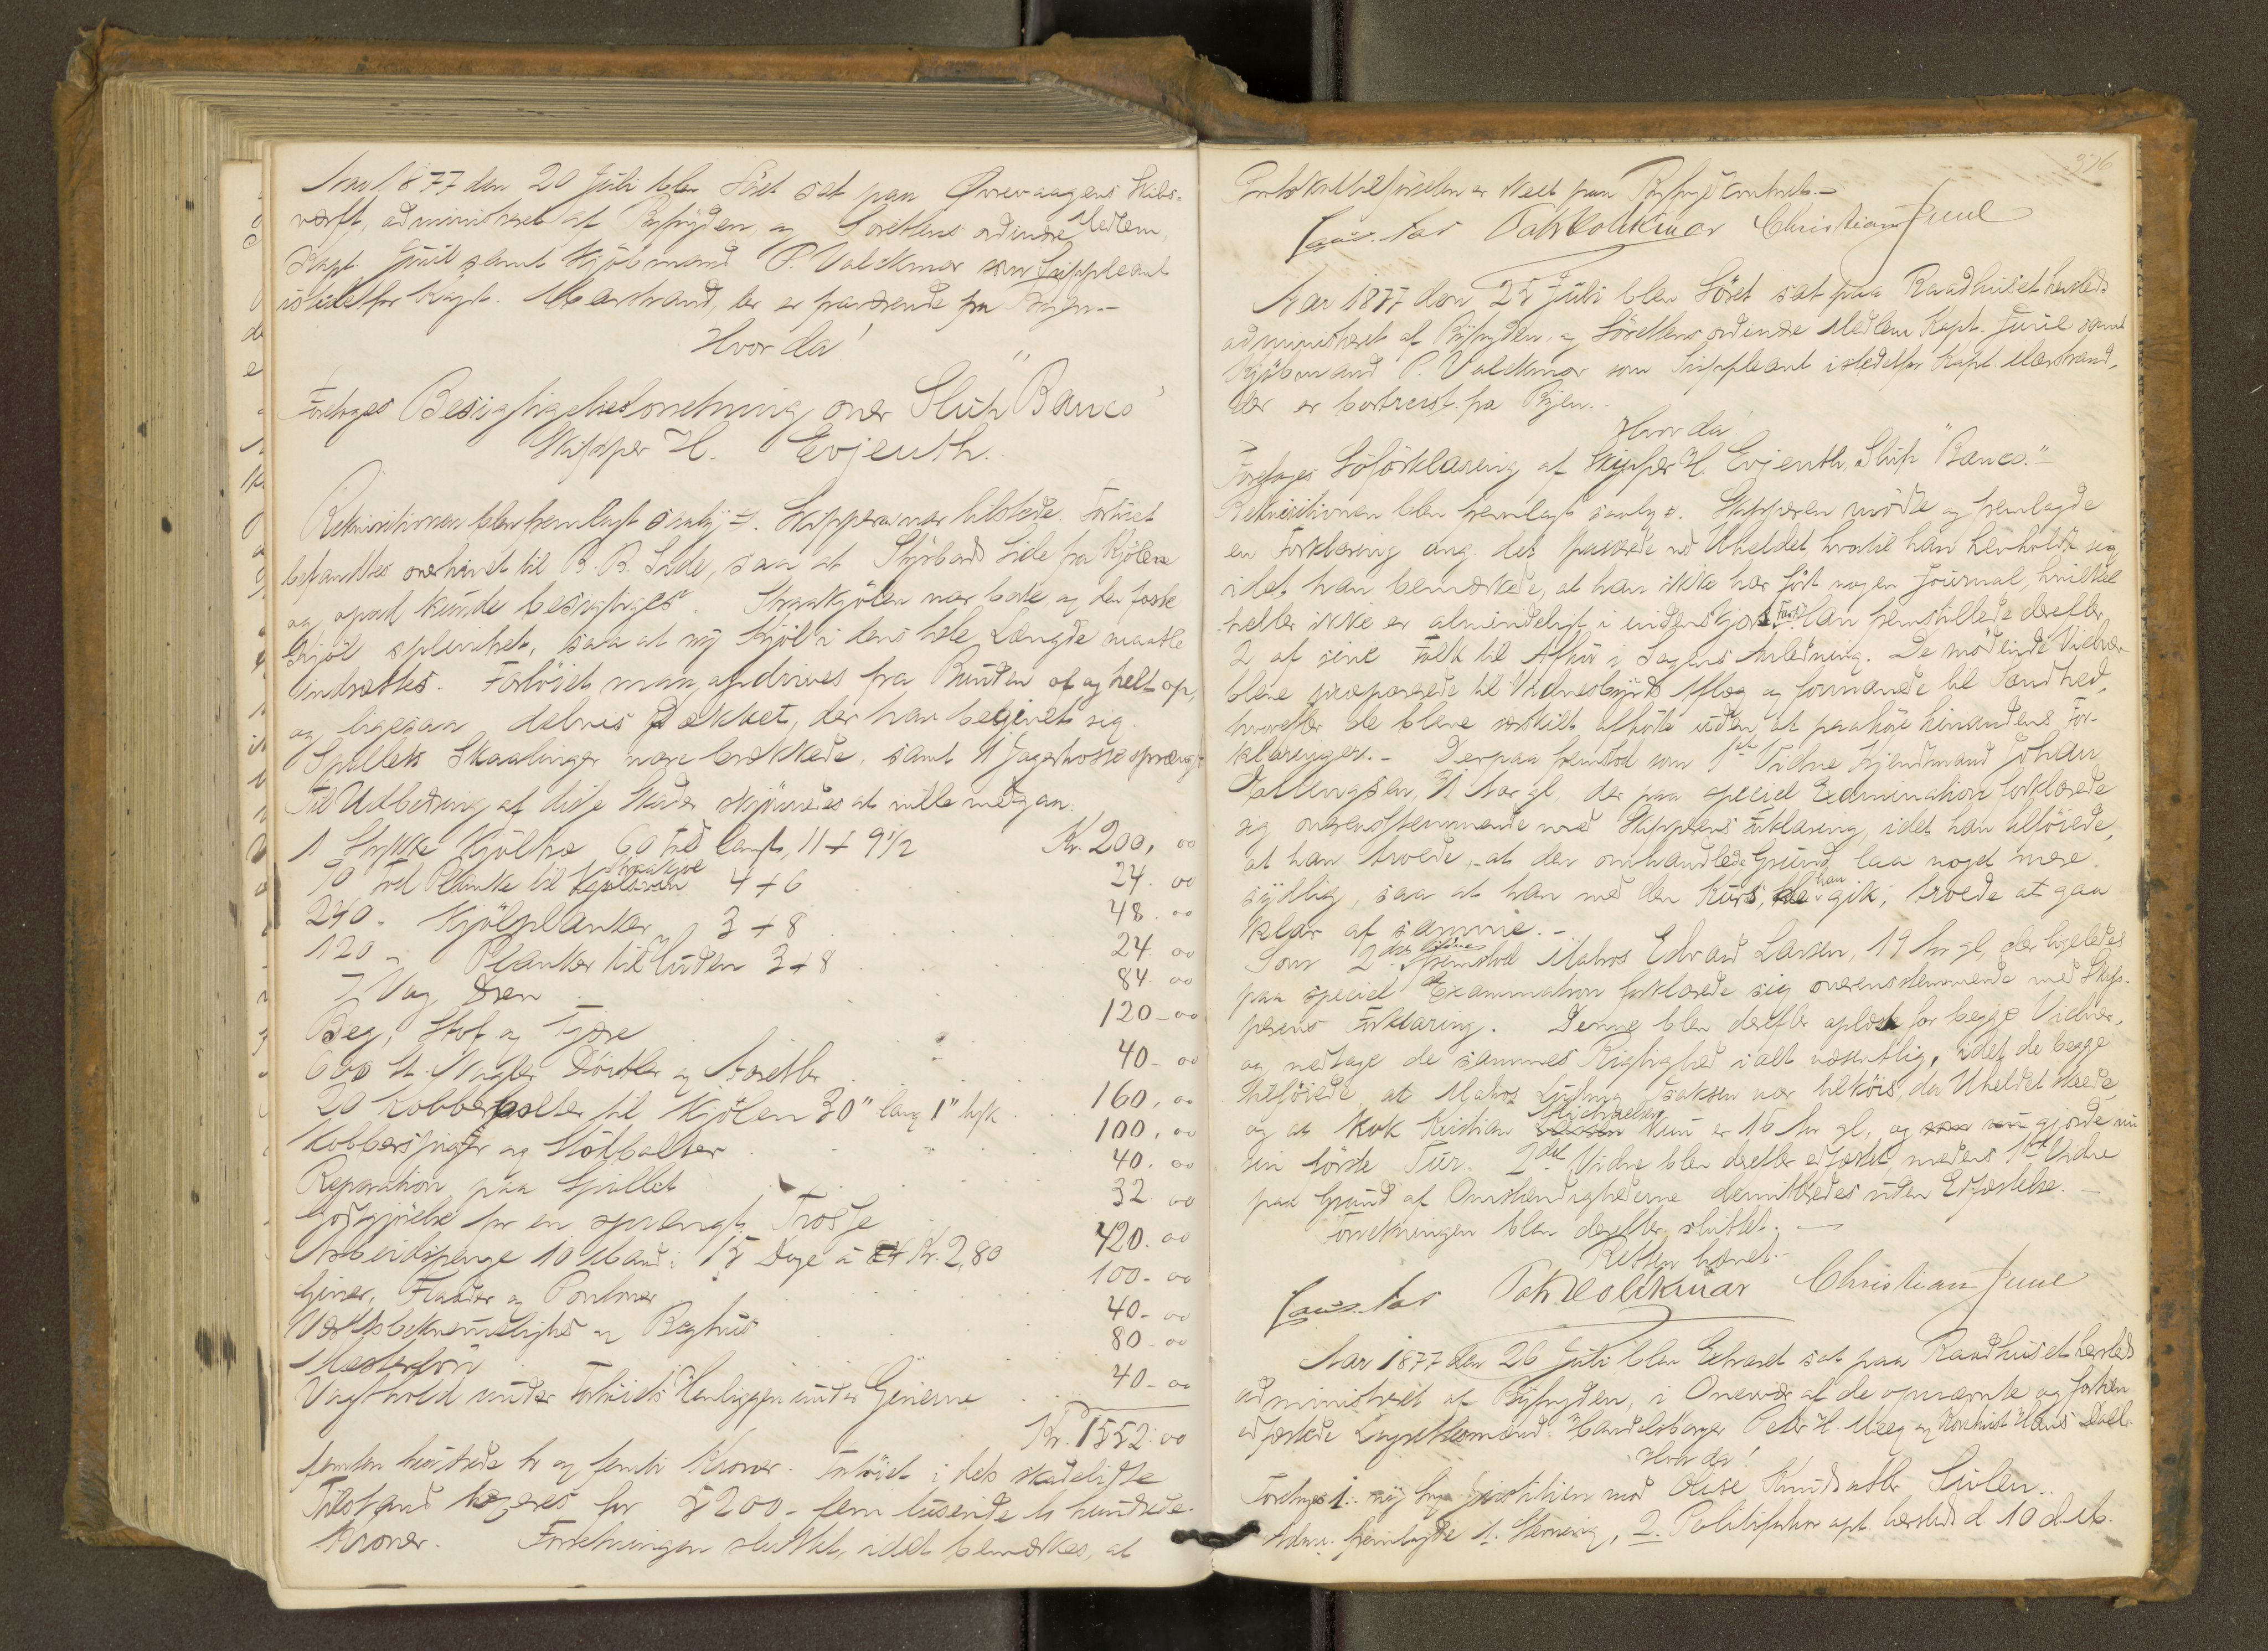 Aar 1877 den 20 Juli blev Söret sat paa Ørrevaagens Skibs-
værft, administreret af Byfogden, og Sörettens ordinære Medlem,
Kapt. Juul samt Kjöbmand P. Volckmar som Suppleant
istedetfor Kapt. Marstrand, der er fraværende fra Byen.-
Hvor da!
Foretoges Besigtigelsesforretning over Slup "Banco"
Skipper H. Evjenth.
Rekvisitionen blev fremlagt saalyd. Skipperen var tilstede. Fartöiet
befandtes overhalet til B. B. Side, saa at Styrbords Side fra Kjölen
og opad kunde besigtiges. Straakjölen var borte og den faste
Kjöl splintret, saa at ny Kjöl i dens hele Længde maatte
indsættes. Fartöiet maa opdrives fra Bunden af og helt op,
og ligesaa delvis Dækket, der har begivet sig.
Spillets Skaalinger vare brækkede, samt 1 Jagertrosse sprængt
Til Udbedring af disse Skader skjönnedes at ville medgaa:
1 Stykke Kjöltræ 60 Fod langt, 11 + 9 1/2 Kr. 200, 00
70 Fod Planke til Straakjöl 4 + 6 24. 00
240 - Kjölplanker 3 + 8 48. 00
120 - Planker til Huden 3 + 8 24. 00
7 Vog Drev 84. 00
Beg, Stof og Tjære 120 - 00
600 St. Nagler Dövtler og 40 - 00
20 Kobberbolter til Kjölen 30" lang 1" tyk 160, 00
Kobberspiger og Stötbolter 100, 00
Reparation paa Spillet 40. 00
Godtgjörelse for en sprængt Trosse 32. 00
Arbeidspenge 10 Mand i 15 Dage a Kr. 2,80 420. 00
Giner, Flaader og Pontoner 100 - 00
Værftsbekvemmelighed og Beghus 40 - 00
Mesterlön 80 - 00
Vagthold under Fartöiets Henliggen under Ginerne 40 - 00
Kr. 1552. 00
femten hundrede to og femti Kroner. Fartöiet i dets skadelidte
Tilstand taxeres for 5200 - fem tusinde to hundrede
Kroner. Forretningen sluttet, idet bemærkes, at
376
Protokoltilförselen er skeet paa Byfogedcontoret.-
P Volckmar Christian Juul
Aar 1877 den 25 Juli blev Söret sat paa Raadhuset hersteds
administreret af Byfogden, og Sörettens ordinære Medlem Kapt. Juul samt
Kjöbmand P. Volckmar som Suppleant istedetfor Kapt. Marstrand,
der er bortreist fra Byen.-
Hvor da!
Foretoges Söforklaring af Skipper H. Evjenth, Slup "Banco."
Rekvisitionen blev fremlagt saalyd. Skipperen mödte og fremlagde
en Forklaring ang. det passerede ved Uheldet, hvortil han henholdt sig
idet han bemærkede, at han ikke har fört nogen Journal, hvilket
heller ikke er almindeligt i indenskjærs Fart. Han fremstillede derefter
2 af sine Folk til Afhör i Sagens Anledning. De mödende Vidner
bleve præparerede til Vidnesbyrds Aflæg og formanede til Sandhed,
hvorefter de bleve særskilt afhörte uden at paahöre hinandens For-
klaringer.- Derpaa fremstod som 1ste Vidne Kjendtmand Johan
Ellingsen, 31 Aar gl, der paa speciel Examination forklarede
sig overensstemmende med Skipperens Forklaring, idet han tilföiede,
at han troede, at den omhandlede Grund laa noget mere
sydlig, saa at han med den Kurs, han gik, troede at gaa
klar af samme.-
Som 2det Vidne fremstod Matros Edvard Larsen, 19 Aar gl, der ligeledes
paa speciel Examination forklarede sig overensstemmende med Skip-
perens Forklaring. Denne blev derefter oplæst for begge Vidner,
og vedtage de sammes Rigtighed i alt væsentlig, idet de begge
tilföiede, at Matros Ludvig Isaksen var tilkøis, da Uheldet skede,
og at Kok Kristian Michaelsen kun er 16 Aar gl, og gjorde nu
sin förste Tur. 2det Vidne blev derefter edfæstet, medens 1ste Vidne
paa Grund af Omstændighederne demitteredes uden Edfæstelse.-
Forretningen blev derefter sluttet.-
Retten hævet.-
P Volckmar Christian Juul
Aar 1877 den 26 Juli blev Extraret sat paa Raadhuset hersteds
administreret af Byfogden, i Overvær af de opnævnte og forhen
edfæstede Lagrettesmænd: Handelsborger Peter H. Meeg og Hans Dahl.
Hvor da!
Foretoges 1. ny Sag Justitien mod Elise Knudsdatter Sivlen.-
fremlagde 1. Stevning, 2. Politiforhör opt. herstedes d. 10 d. M.